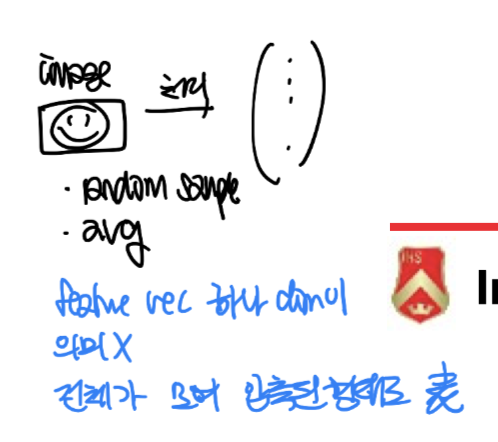 image 추출
· random sample
· avg
IHS
In
feature vec 하나 dim이
의미X
전체가 모여 압축된 형태로 表